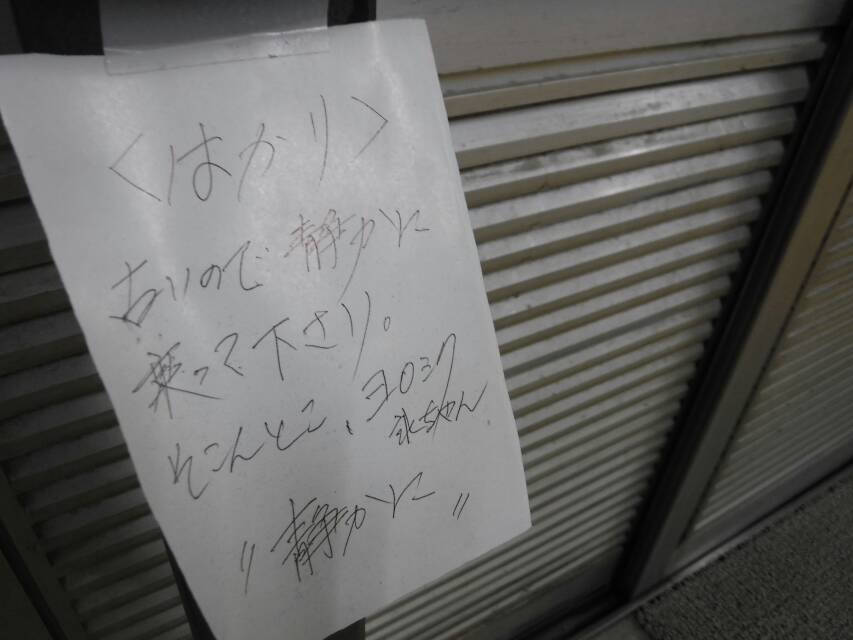 〈はかり〉
古いので静かに
乗って下さい。
そこんとこ、ヨロシク
永ちゃん
〃静かに〃